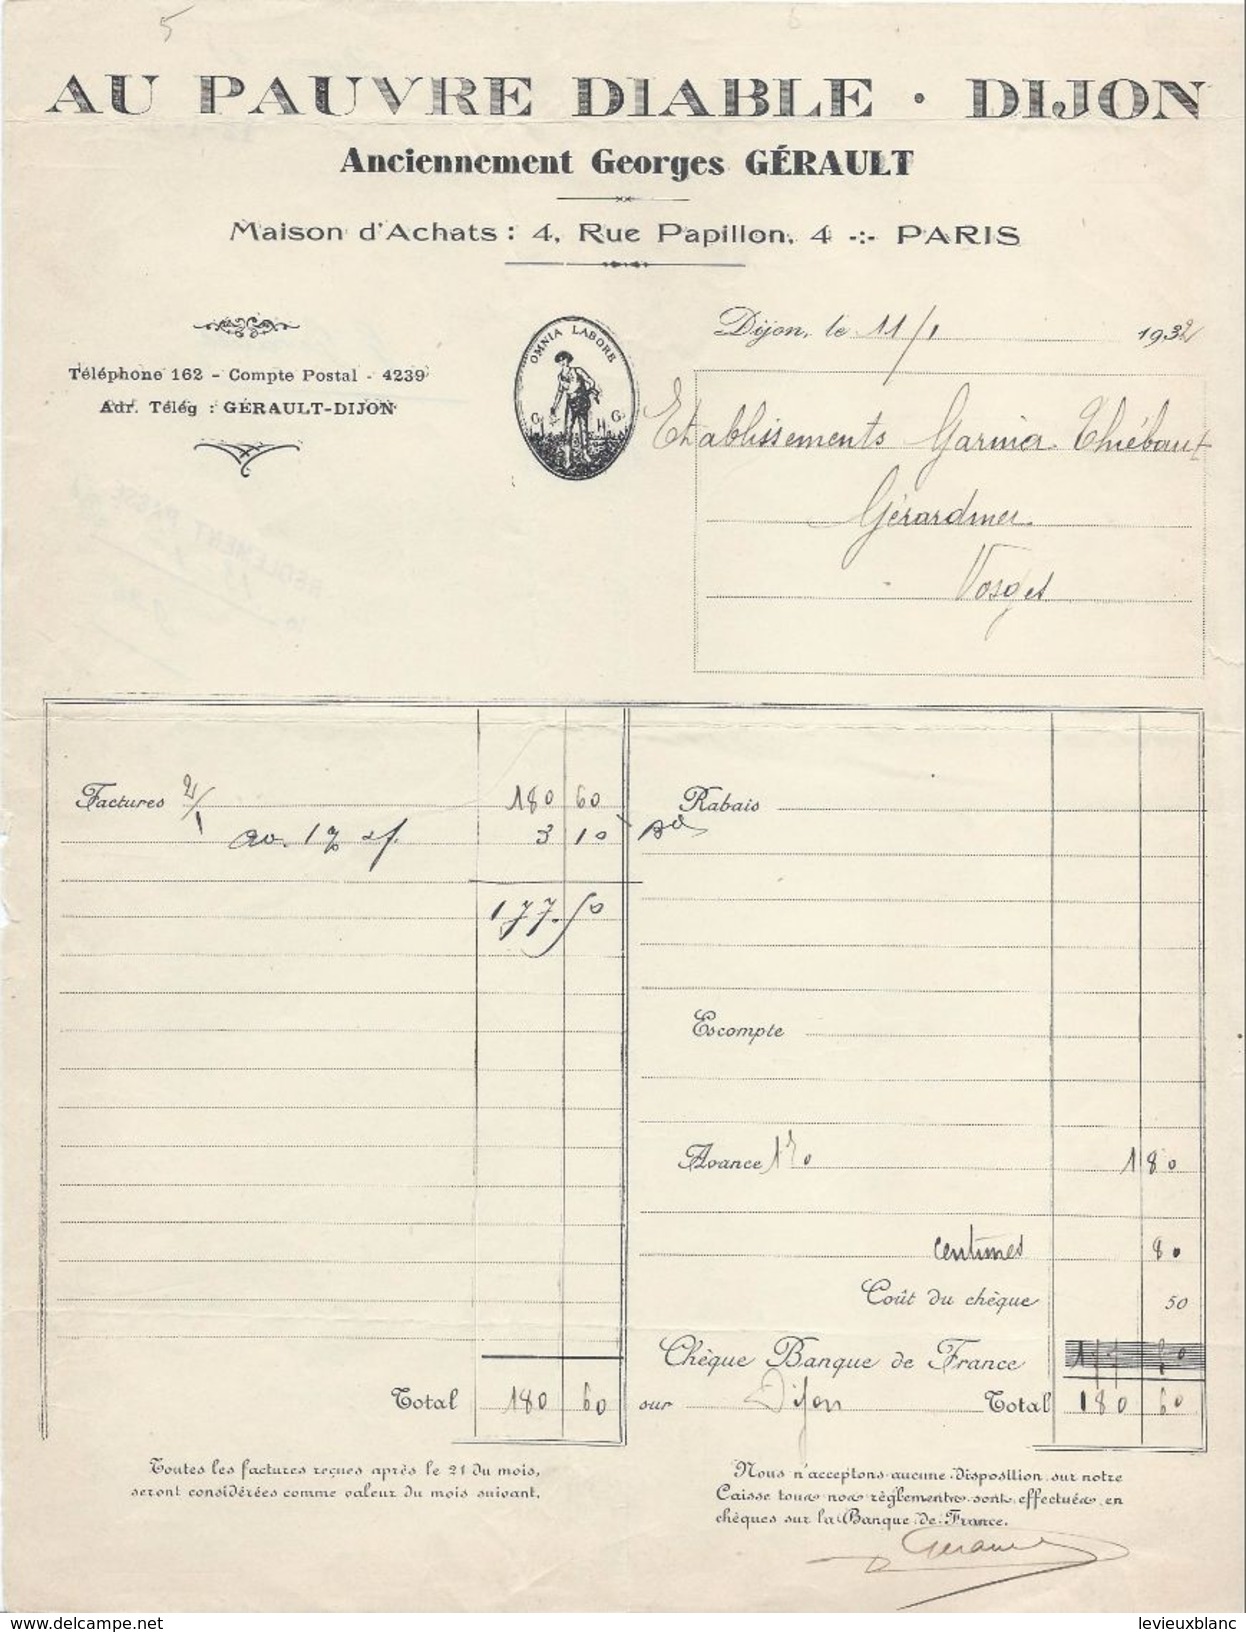 5
AU PAUVRE DIABLE · DIJON
Anciennement Georges GÉRAULT
Maison d'Achats : 4, Rue Papillon, 4 -:- PARIS
Téléphone 162 - Compte Postal - 4239
Adr. Télég : GÉRAULT-DIJON
OMNIA LABORE
G G
H
Dijon, le 11/1 1932
Etablissements Garnier Thiébaut
Gérardmer
Vosges
RÈGLEMENT PASSÉ
Factures 2/1 180 60
3 10
177.50
Total 180 60
Rabais
Escompte
Avance 1% 1 80
centimes 80
Coût du chèque 50
Chèque Banque de France 177 50
sur Dijon Total 180 60
Toutes les factures reçues après le 21 du mois,
seront considérées comme valeur du mois suivant.
Nous n'acceptons aucune disposition sur notre
Caisse tous nos règlements sont effectués en
chèques sur la Banque de France.
levieuxblanc